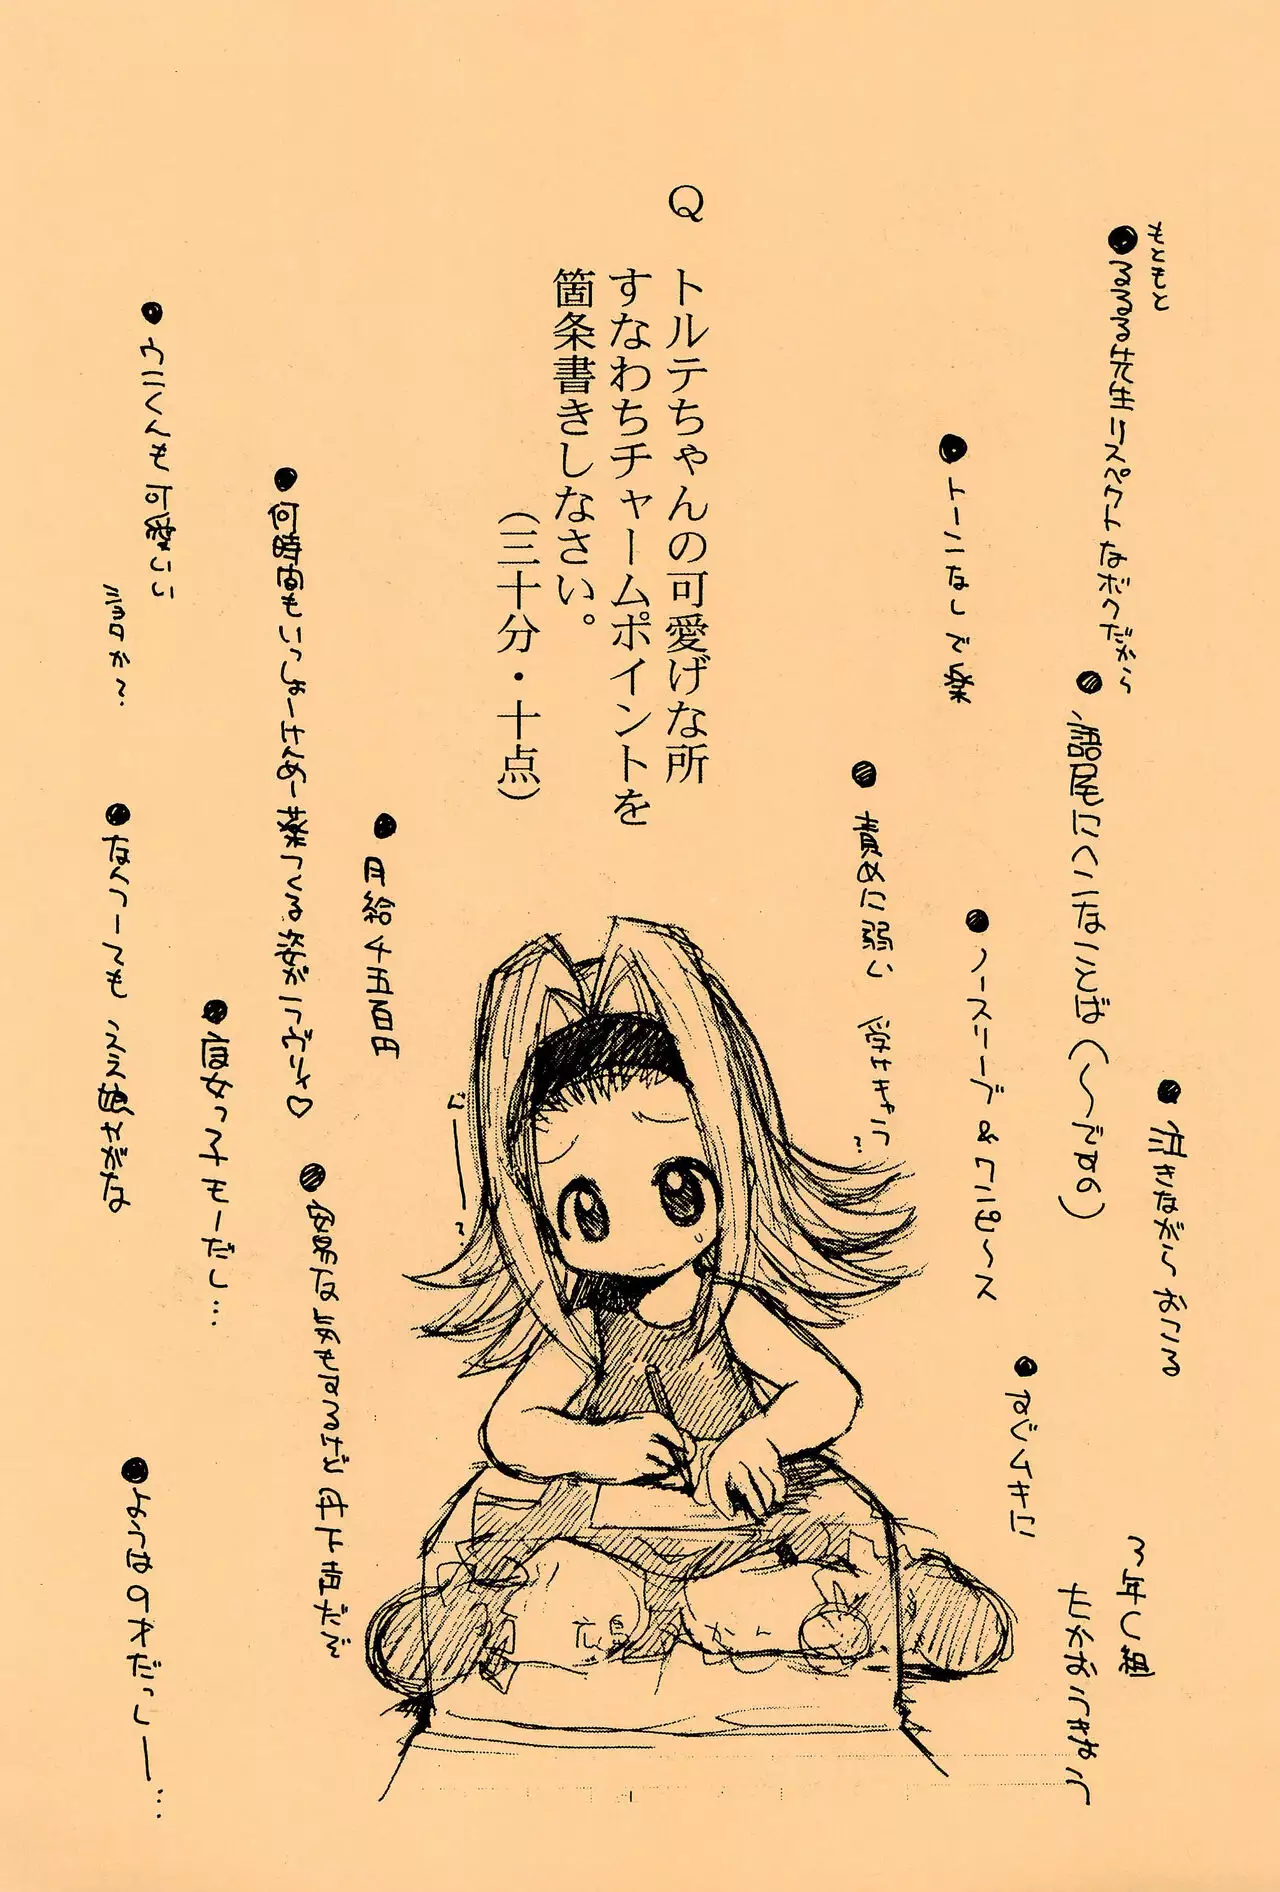 Q トルテちゃんの可愛げな所
すなわちチャームポイントを
箇条書きしなさい。
(三十分・十点)
もともと
●るるる先生リスペクトなボクだから
●語尾にヘンなことば(〜ですの)
●泣きながらおこる
●トーンなしで楽
●ノースリーブ&ワンピ〜ス
●すじムキに
3年C組
●責めに弱い 受けキャラ?
●月給千五百円
●何時間もいっしょーけんめー薬つくる姿がラヴリィ♡
●安易な気もするけど丹下声だぞ
●貧女っ子モーだし…
●うにくんも可愛いい
ショタか?
●なんつーても ええ娘やがな
●ようはのオだっしー…
広島 みかん